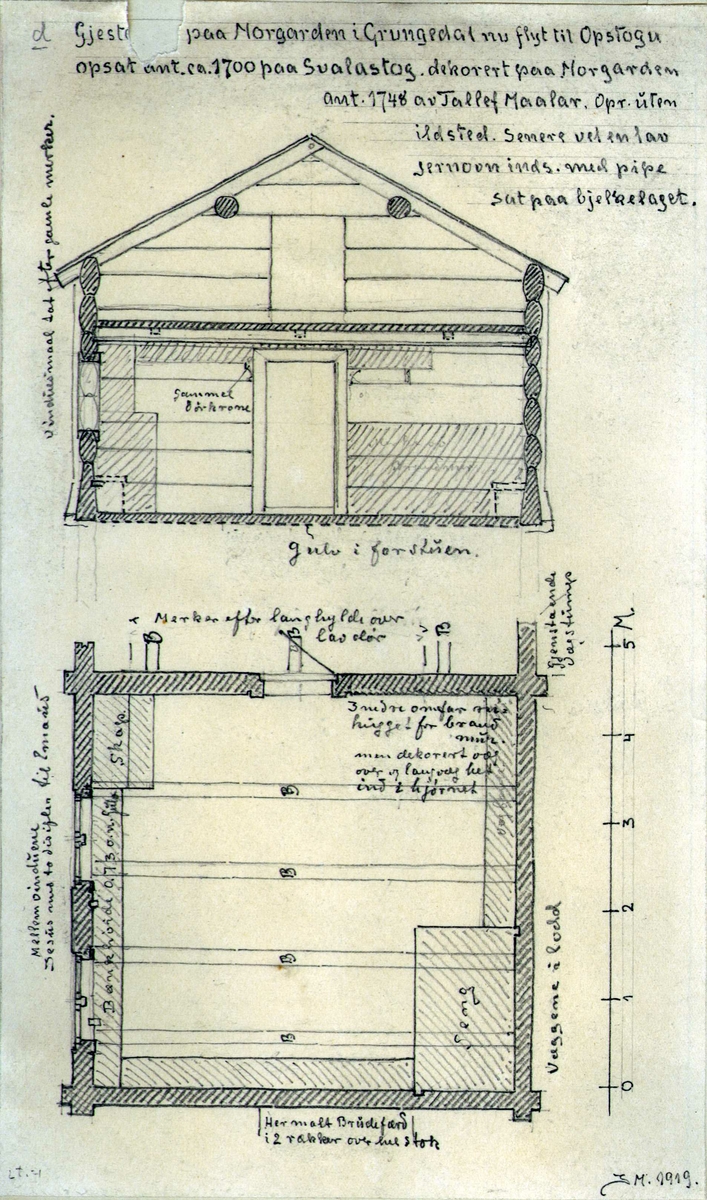 d Gjeste paa Morgarden i Grungedal nu flyt til Opstogu
opsat ant. ca. 1700 paa Svalastog. dekorert paa Morgarden
ant. 1748 av Tallef Maalar. Opr. uten
ildsted. Senere vel en lav
jernovn inds. med pipe
sat paa bjelkelaget.
Vinduesmaal tat efter gamle merker.
Gammel
Gulv i forstuen.
x Merker efter langhylde over
lav dør
B B B
Gjenstaaende
M.
5
4
3
2
1
0
Skap
3 nedre omfar
hugget for brand
mur.
men dekorert
over og
ind i hjørnet
B
B
B
B
Mellem vinduene
Jesus med to disipler til Emaus
Seng
Væggene i lodd
Her malt Brudefærd
i 2 rækker over hel stok
J M. 1919.